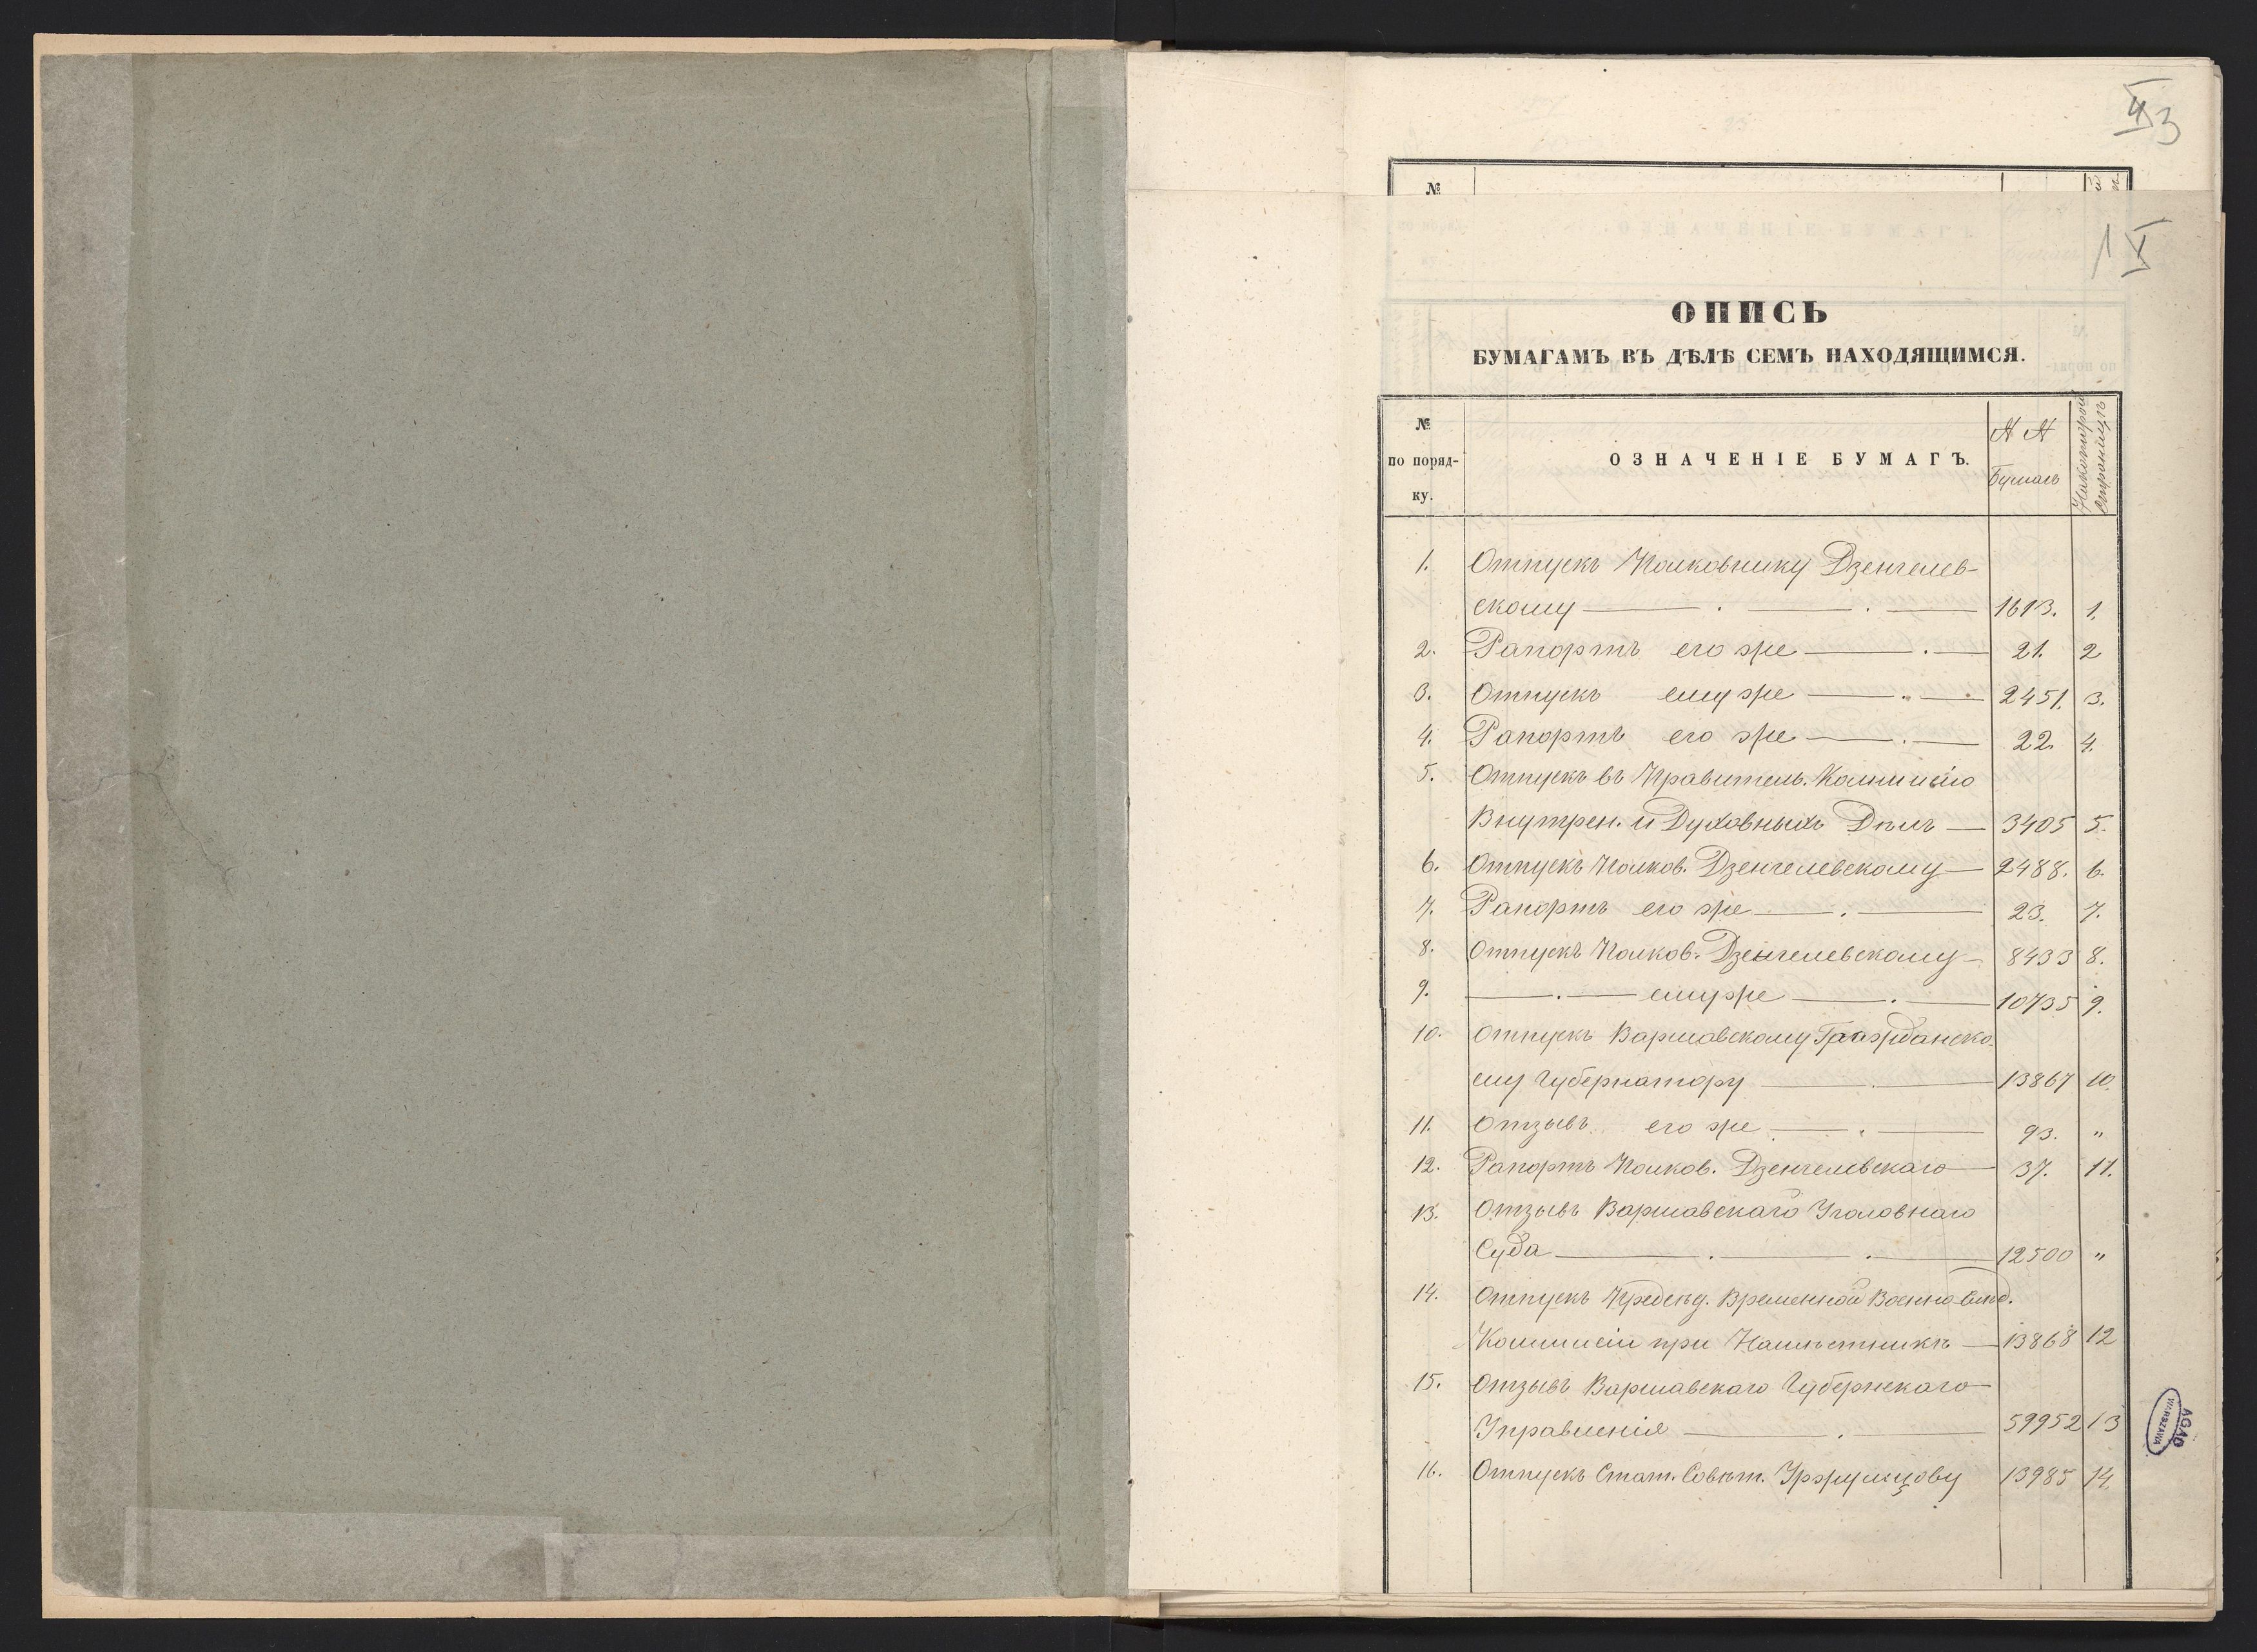 3
№
1
ОПИСЬ
БУМАГАМЪ ВЪ ДѢЛѢ СЕМЪ НАХОДЯЩИМСЯ.
№ по поряд-ку. ОЗНАЧЕНІЕ БУМАГЪ. №№ Бумагъ На которой страницѣ
1. Отпускъ Полковнику Дзенгелев-
скому 1613. 1.
2. Рапортъ его же 21. 2
3. Отпускъ ему же 2451. 3.
4. Рапортъ его же 22. 4.
5. Отпускъ въ Правитель. Коммисію
Внутрен. и Духовныхъ Дѣлъ 3405 5.
6. Отпускъ Полков. Дзенгелевскому 2488. 6.
7. Рапортъ его же 23. 7.
8. Отпускъ Полков. Дзенгелевскому 8433 8.
9. ему же 10735 9.
10. Отпускъ Варшавскому Гражданско-
му Губернатору 13867 10.
11. Отзывъ его же 93. "
12. Рапортъ Полков. Дзенгелевскаго 37. 11.
13. Отзывъ Варшавскаго Уголовнаго
Суда 12500 "
14. Отпускъ Предсѣд. Временной Военно Слѣд.
Коммисіи при Намѣстникѣ 13868 12
15. Отзывъ Варшавскаго Губернскаго
Управленія 59952 13
16. Отпускъ Стат. Совѣт. 13985 14.
AGAD
WARSZAWA